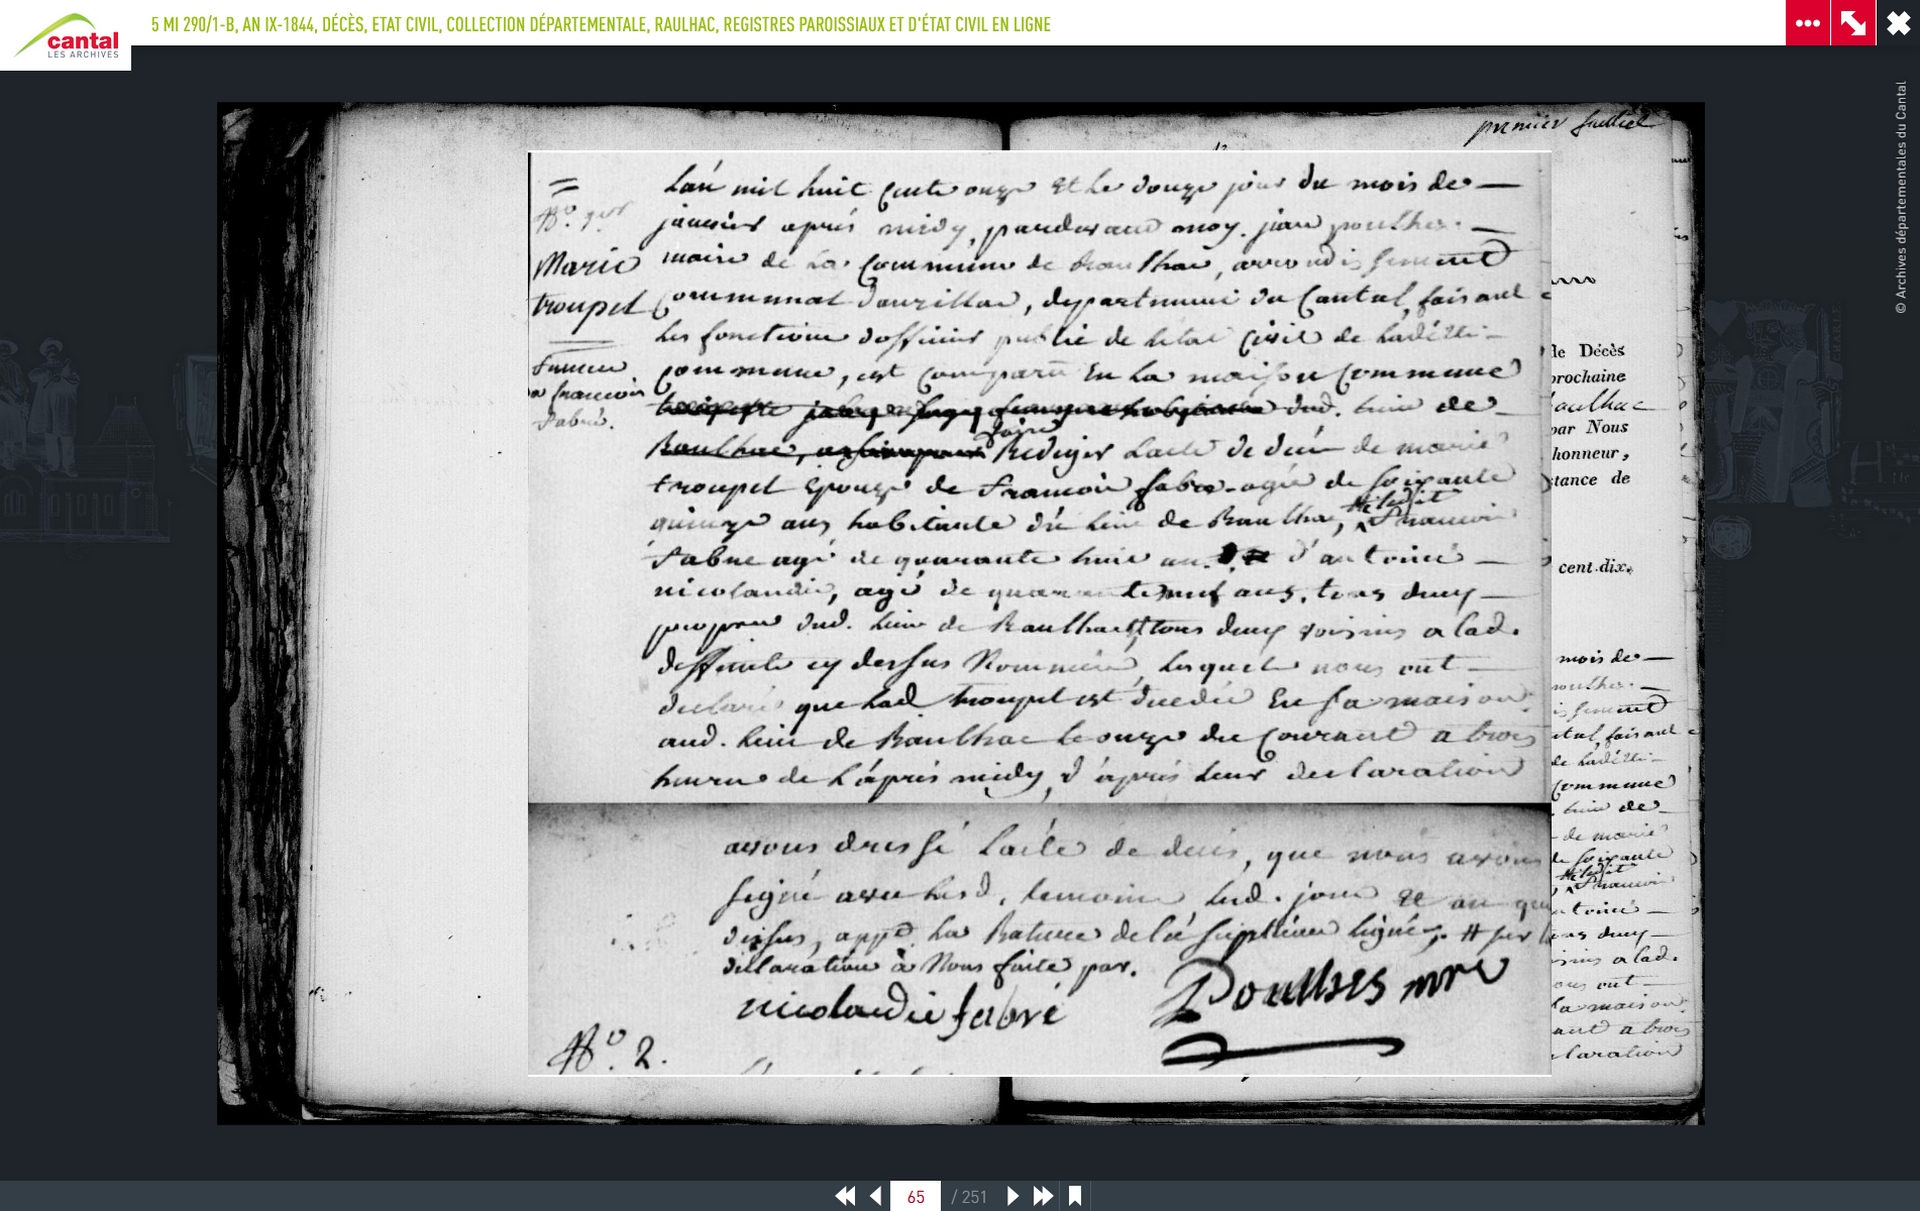 5 MI 290/1-B, AN IX-1844, DÉCÈS, ETAT CIVIL, COLLECTION DÉPARTEMENTALE, RAULHAC, REGISTRES PAROISSIAUX ET D'ÉTAT CIVIL EN LIGNE
cantal
LES ARCHIVES
© Archives départementales du Cantal
premier feuillet
N.o 1er
Marie
troupel
femme
a francois
fabre.
L'an mil huit cents onze et le douze jour du mois de
janvier aprés midy, pardevant moy. jean poulhes.
maire de la Commune de Raulhac, arrondissement
Communal d'aurillac, departement du Cantal, faisant
les fonctions d'officier public de letat Civil de ladétte
Commune, est Comparu En la maison Commune
dud. lieu de
Raulhac, faire Rediger Lacte de décés de marie
troupel Epouze de francois fabre agée de soixante
quinze ans habitante du lieu de Raulhac, francois
fabre agé de quarante huit ans d'antoine
nicolaudie, agé de quarante neuf ans. tous deux
propres dud. lieu de Raulhac # tous deux voisins a lad.
deffunte cy dessus Nommée, lesquels nous ont
declaré que lad troupel est decedée En sa maison
aud. lieu de Raulhac le onze du Courant a trois
heures de l'áprés midy, d'áprés leur declaration
avons dressé Lacte de decés, que nous avons
signé avec lesd. temoins lesd. jour et an que
dessus, appé. la Rature de la septieme ligne, # sur la
declaration à Nous faite par.
nicolaudie fabre
Poulhes mre
N.o 2.
de Décès
prochaine
aulhac
par Nous
honneur,
stance de
cent dix.
mois de
oulhes.
issement
tal, faisant
de ladétte
Commune
lieu de
de marie
de soixante
francois
antoine
ous deux
isins a lad.
ous ont
sa maison
ant a trois
laration
65 / 251